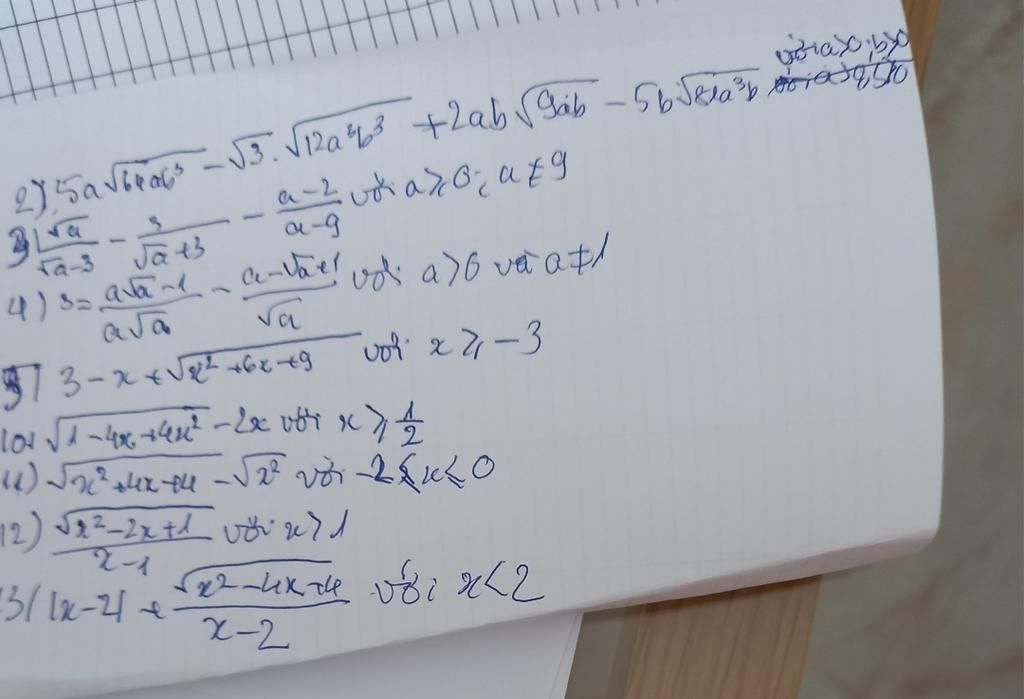 với a>0; b>0
2) 5a√(64ab³) - √3 . √(12a³b³) + 2ab√(9ab) - 5b√(81a³b)
3) √a/(√a-3) - 3/(√a+3) - (a-2)/(a-9) với a ≥ 0; a ≠ 9
4) S = (a√a - 1)/(a√a) - (a-√a+1)/√a với a > 0 và a ≠ 1
3 - x + √(x² + 6x + 9) với x ≥ -3
10) √(1 - 4x + 4x²) - 2x với x ≥ 1/2
11) √(x² + 4x + 4) - √(x²) với -2 ≤ x ≤ 0
12) √(x² - 2x + 1)/(x - 1) với x > 1
3) |x - 2| + √(x² - 4x + 4)/(x - 2) với x < 2